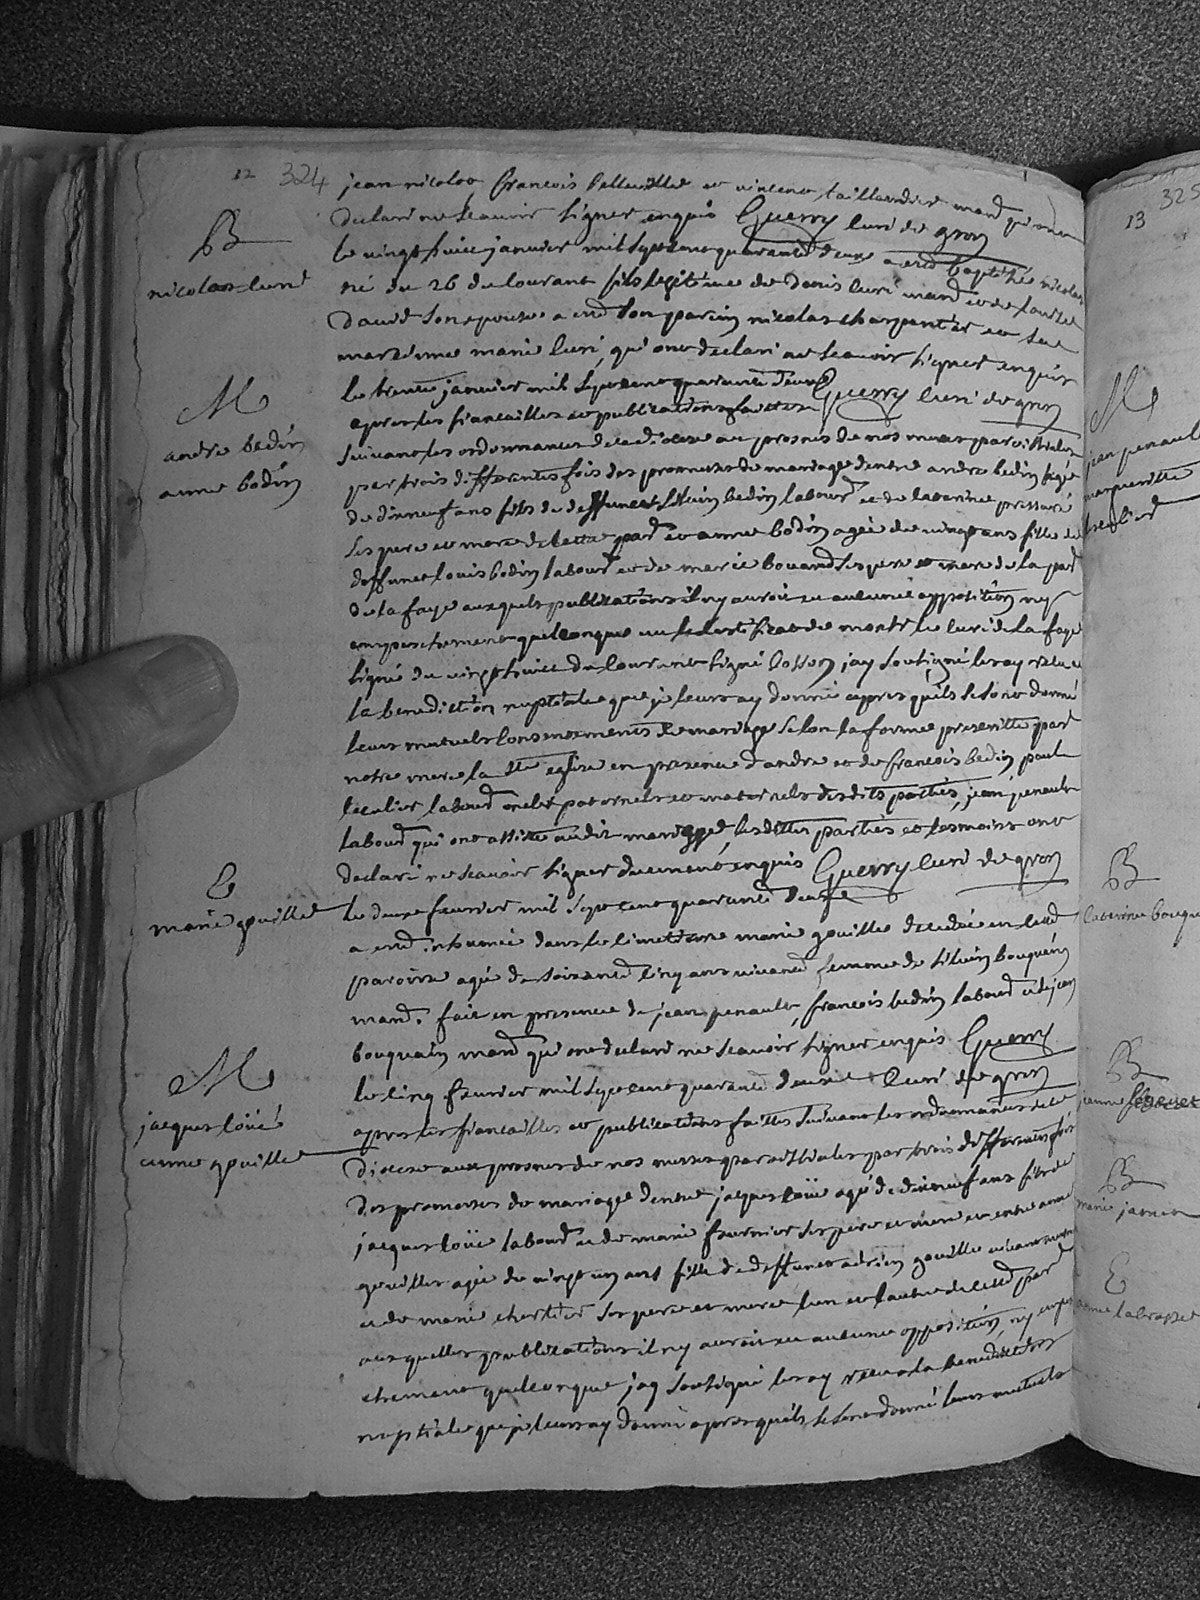 12 324
jean nicolas francois belleville et vincent taillandier mand qui ont
declaré ne scavoir signer enquis Guerry curé de gron
B
nicolas curé
le vingt huict janvier mil sept cent quarante deux a eté baptisé nicolas
né du 26 du courant fils legitime de denis curé mand et de
david son epouse a eté son parin nicolas charpentier et sa
mareine marie curé, qui ont declaré ne scavoir signer enquis
Guerry curé de gron
M
andré bedin
anne bodin
le trente janvier mil sept cent quarante deux
apres les fiancailles et publications faittes
suivant les ordonnances de ce diocese au prosnes de nos messes paroissialles
par trois differentes fois des promesses de mariage d'entre andré bedin agé
de dixneuf ans fils de deffunct silvin bedin labourd et de caterine pressoré
ses pere et mere de cette pard et anne bodin agée de vingt ans fille de
deffunct louis bodin labourd et de marie bouard ses pere et mere de la pard
de la faye auxquels publications il ny auroit eu aucune opposition ny
empeschement quelconque vu le certificat de monsr le curé de la faye
signé du vingt huict du courant signé Cosson jay soussigné leray receu a
la benediction nuptiale que je leurs ay donné apres quils se sont donné
leurs mutuels consentements de mariage selon la forme prescritte par
notre mere la ste eglise en presence d'andré et de francois bedin paul
lecalier labourd oncles paternels et maternels desdits parties, jean penault
labourd qui ont assisté audit mariage, lesdittes parties et tesmoins ont
declaré ne scavoir signer duement enquis Guerry curé de gron
E
marie gouillet
le deux fevrier mil sept cent quarante deux
a eté inhumée dans le cimetiere marie gouillet decedée en cette
paroisse agé de soixante cinq ans vivante femme de silvin bouquin
mand. fait en presence de jean penault, francois bedin labourd et jean
bouquain mand qui ont declaré ne scavoir signer enquis Guerry
curé de gron
M
jacques loüé
anne gouillet
le cinq fevrier mil sept cent quarante deux
apres les fiancailles et publications faittes suivant les ordonnances de ce
diocese aux prosnes de nos messes paroissiales par trois differentes fois
des promesses de mariage d'entre jacques loüé agé de dixneuf ans fils de
jacques loüé labourd et de marie fournier ses pere et mere et entre anne
gouillet agée de vingt un ans fille de deffunct adrien gouillet vivant
et de marie chertier ses pere et mere l'un et l'autre de cette pard
auxquelles publications il ny auroit eu aucune opposition ny empes
chement quelconque jay soussigné leray receu a la benediction
nuptiale que je leurs ay donné apres quils se sont donné leurs mutuels
13 325
M
jean penault
marguerite
B
caterine bouqu
B
jeanne
B
marie
E